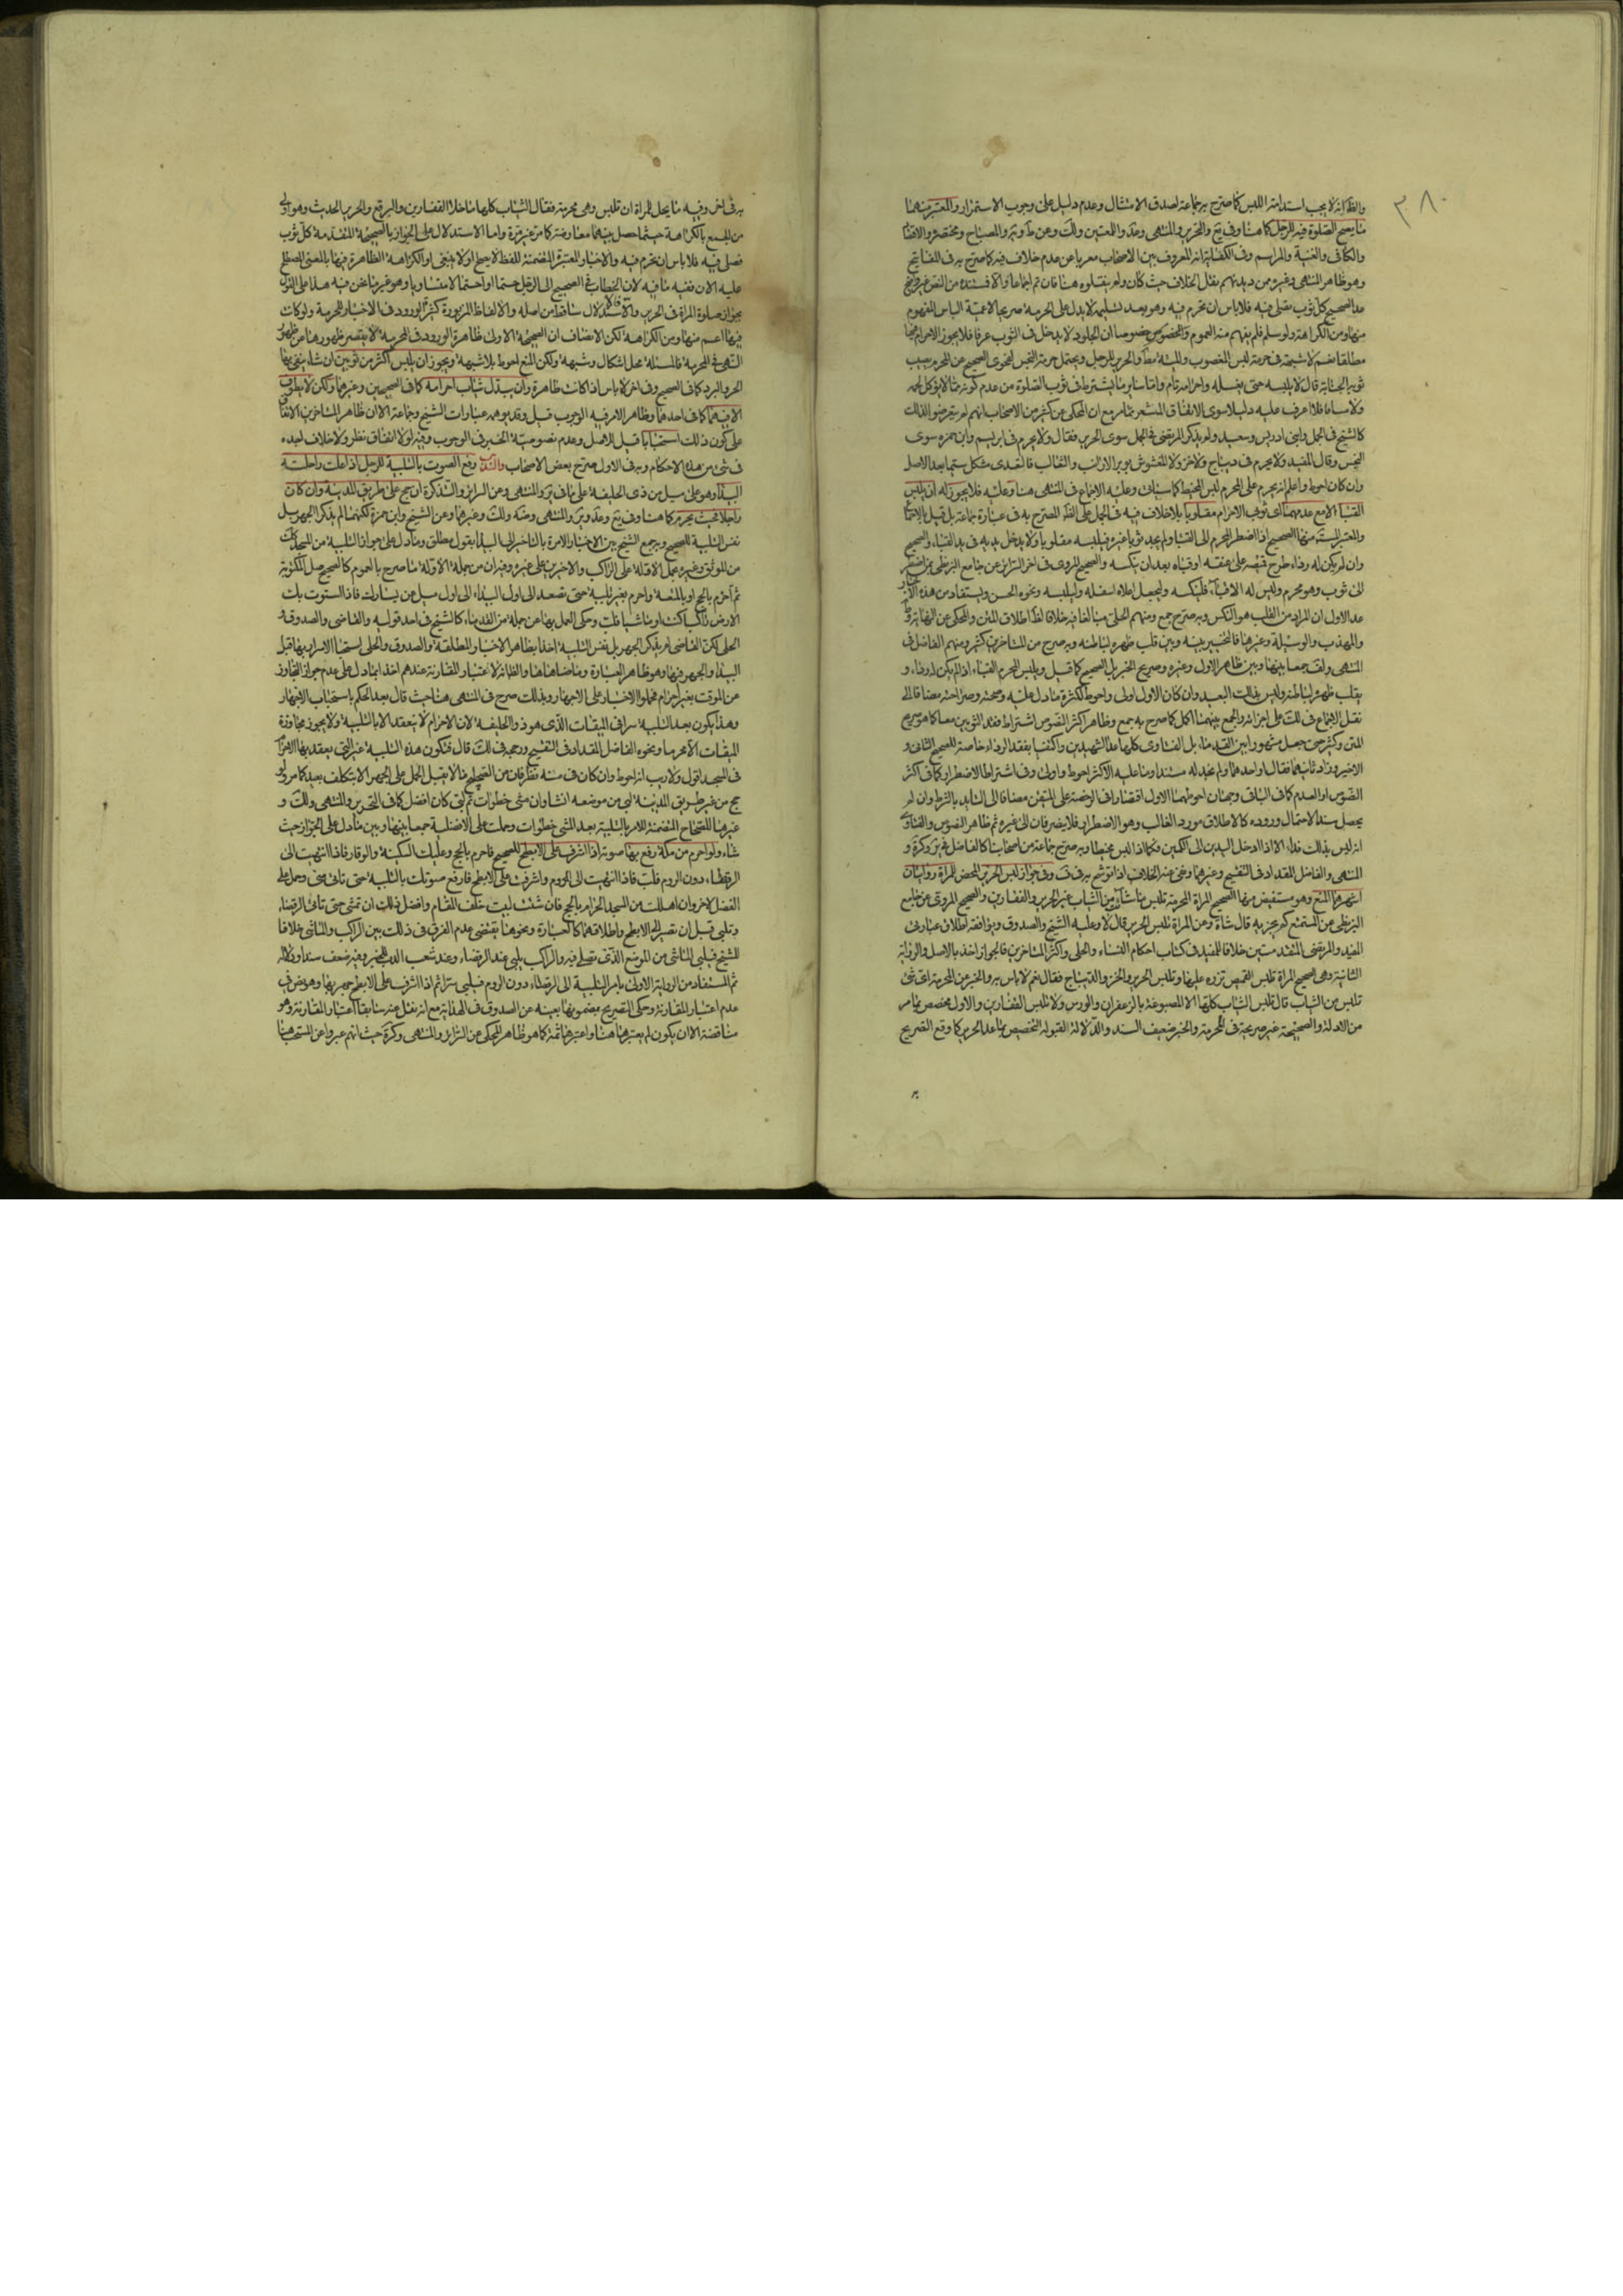 ٣٨٠
والظ انه لا يجب استدامة اللبس كما صرح به جماعة لصدق الامتثال وعدم دليل على وجوب الاستمرار والمعتبر منهما
ما يصح الصلوة فيه للرجل كما هنا وفي يع والتحرير والمنتهى وعد والمعتبر ولك وعن ط وير والمصباح ومختصره والاقتصا
والكافي والغنية والمراسم وفي الكفاية انه المعروف بين الاصحاب معربا عن عدم خلاف فيه كما صرح به في المفاتيح
وهو ظاهر المنتهى وغيره من ديدنهم نقل الخلاف حيث كان ولم ينقلوه هنا فان تم اجماعا والا فسنده من النص غير واضح
عدا الصحيح كل ثوب يصلى فيه فلا باس ان تحرم فيه وهو بعد تسليمه لا يدل على الحرمة صريحا لاعمية الباس المفهوم
منها ومن الكراهة ولو سلم فلم يفهم منه العموم والخصوص خصوصا ان الجلود لا يدخل في الثوب عرفا فلا يجوز الاحرام فيها
مطلقا نعم لا شبهة في حرمة لبس المغصوب والميتة مط والحرير للرجل ويحتمل حرمة النجس لفحوى الصحيح عن المحرم يصيب
ثوبه الجنابة قال لا يلبسه حتى يغسله واحرامه تام واما سائر ما يشترط في ثوب الصلوة من عدم كونه مما لا يؤكل لحمه
ولا مساعا فلا اعرف عليه دليلا سوى الاتفاق المستشعر مما مر مع ان المحكي عن كثير من الاصحاب انهم لم يتعرضوا لذلك
كالشيخ في الجمل وابني ادريس وسعيد ولم يذكر المرتضى في الجمل سوى الحرير فقال ولا يحرم في ابريسم وابن حمزه سوى
النجس وقال المفيد ولا يحرم في ديباج ولا خز ولا مغشوش بوبر الارانب والثعالب فالتعدى مشكل سيما بعد الاصل
وان كان احوط واعلم انه يحرم على المحرم لبس المخيط كما سياتي وعليه الاجماع في المنتهى هنا وعليه فلا يجوز له ان يلبس
القبا الا مع عدمهما اي ثوبي الاحرام مقلوبا بلا خلاف فيه في الجمل على الظ المصرح به في عبارة جماعة بل قيل بالاجماع
والمعتبر المستفيضة منها الصحيح اذا اضطر المحرم الى القبا ولم يجد ثوبا غيره فليلبسه مقلوبا ولا يدخل يديه في يد القباء والصحيح
وان لم يكن له رداء طرح قميصه على عنقه او قباه بعد ان ينكسه والصحيح المروي في اخر السرائر عن جامع البزنطي من اضطر
الى ثوب وهو محرم وليس له الا قباء فلينكسه وليجعل اعلاه اسفله وليلبسه ونحوه الحسن ويستفاد من هذه الاخبار
عدا الاول ان المراد من القلب هو النكس وبه صرح جمع ومنهم الحلي مبالغا فيه خلافا لظاهر اطلاق المتن والمحكي عن النهاية وط
والمهذب والوسيلة وغيرها فالتخيير بينه وبين قلب ظهره لباطنه وبه صرح من المتاخرين كثير ومنهم الفاضل في
المنتهى ولف جمعا بينها وبين ظاهر الاول وغيره وصريح الخبر بل الصحيح كما قيل ويلبس المحرم القباء اذا لم يكن له رداء و
يقلب ظهره لباطنه وليس بذلك البعيد وان كان الاول اولى واحوط لكثرة ما دل عليه وصحته وصراحته مضافا الى
نقل الاجماع في لك على اجزائه والجمع بينهما اكمل كما صرح به جمع وظاهر اكثر النصوص اشتراط فقد الثوبين معا كما هو صريح
المتن وكثير حتى جعل مشهورا بين القدماء بل الفتاوى كلها عدا الشهيدين واكتفيا بفقد الرداء خاصة للصحيح الثاني و
الاخير وزاد ثانيهما فقال او احدهما ولم نجد له مستندا وما عليه الاكثر احوط واولى وفي اشتراط الاضطرار كما في اكثر
النصوص او العدم كما في الباقي وجهان احوطهما الاول اقتصارا في الرخصة على المتيقن مضافا الى التاييد بالشرط وان لم
يحصل سندا لاحتمال وروده كالاطلاق مورد الغالب وهو الاضطرار فلا يصرفان الى غيره ثم ظاهر النصوص والفتاوى
انه ليس بذلك فداء الا اذا ادخل اليدين الى الكمين فكما اذا لبس مخيطا وبه صرح جماعة من اصحابنا كالفاضل في ير وكرة و
المنتهى والفاضل المقداد في التنقيح وغيرهما وعن الخلاف اذا توشح به في ف وفي جواز لبس الحرير المحض للمراة روايتان
اشهرهما المنع وهو مستفيض منها الصحيح المراة المحرمة تلبس ما شاءت من الثياب غير الحرير والقفازين والصحيح المروي عن جامع
البزنطي عن المتمتع كم يجزيه قال شاة وعن المراة تلبس الحرير قال لا وعليه الشيخ والصدوق ويوافقه اطلاق عبارتي
المفيد والمرتضى المتقدمتين خلافا للمفيد في كتاب احكام النساء والحلي واكثر المتاخرين فالجواز اخذ بالاصل والرواية
الثانية وهي الصحيح المراة تلبس القميص تزره عليها وتلبس الحرير والخز والديباج فقال نعم لا باس به والخبر عن المحرمة اي شئ
تلبس من الثياب قال تلبس الثياب كلها الا المصبوغة بالزعفران والورس ولا تلبس القفازين والاول مخصص بما مر
من الادلة والصحيحة غير صريحة في المحرمة والخبر ضعيف السند والدلالة القبولة التخصيص بما عدا الحرير كما وقع التصريح
به في اخر وفيه ما يحل للمراة ان تلبس وهي محرمة فقال الثياب كلها ما خلا القفازين والبرقع والحرير الحديث وهو اولى
من الجمع بالكراهة حيثما حصل بينهما معارضة كما مر غير مرة واما الاستدلال على الجواز بالصحيحة المتقدمة كل ثوب
تصلى فيه فلا باس ان تحرم فيه والاخبار المعتبرة المتضمنة للفظ لا يصلح او لا ينبغي او الكراهة الظاهرة فيها بالمعنى المصطلح
عليه الان ففيه ما فيه لان الخطاب في الصحيح الى الرجل حتما او احتمالا متساويا وهو غير ما نحن فيه هذا على القول
بجواز صلوة المراة في الحرير والا فالاستدلال ساقط من اصله والالفاظ المزبورة كثيرا الورود في الاخبار للحرمة ولو كانت
فيها اعم منها ومن الكراهة لكن الانصاف ان الصحيحة الاولى ظاهرة الورود في المحرمة لا يقصر ظهورها من ظهور
النهي في الحرمة فالمسئلة محل اشكال وشبهة ولكن المنع احوط بلا شبهة ويجوز ان يلبس اكثر من ثوبين ان شاء يتقي بها
الحر والبرد كما في الصحيح وفي اخر لا باس اذا كانت طاهرة وان يبدل ثياب احرامه كما في الصحيحين وغيرهما ولكن لا يطوف
الا فيهما كما في احدهما وظاهر الامر فيه الوجوب قيل وقد يوهمه عبارات الشيخ وجماعة الا ان ظاهر المتاخرين الاتفاق
على كون ذلك استحبابا قيل للاصل وعدم نصوصية الخبر في الوجوب وفيه لولا الاتفاق نظر ولا خلاف اجده
في شئ من هذه الاحكام وبه في الاول صرح بعض الاصحاب والندب رفع الصوت بالتلبية للرجل اذا علت راحلته
البيدا وهو على ميل من ذي الحليفة على ما في ير والمنتهى وعن السرائر والتذكرة ان حج على طريق المدينة وان كان
راجلا فحيث يحرم كما هنا وفي يع وعد وير والمنتهى وعنه ولك وغيرهما وعن الشيخ وابن حمزة لكنهما لم يذكرا الجهر بل
نفس التلبية للصحيح وبه جمع الشيخ بين الاخبار الامرة بالتاخير الى البيدا بقول مطلق وما دل على جواز التلبية من المسجد كذلك
من الموثق وغيره بحمل الاولة على الراكب والاخيرين على غيره وفيه ان من جملة الاولة ما صرح بالعموم كالصحيح صل المكتوبة
ثم احرم بالحج او بالمتعة واحرم بغير تلبية حتى تصعد الى اول البيداء الى اول ميل عن يسارك فاذا استوت بك
الارض راكبا كنت او ماشيا فلب وحكي العمل بها عن جملة من القدماء كالشيخ في احد قوليه والقاضي والصدوق و
الحلي لكن القاضي لم يذكر الجهر بل نفس التلبية اخذا بظاهر الاخبار المطلقة والصدوق والحلي استحبا الاسرار بها قبل
البيدا والجهر فيها وهو ظاهر العبارة وما ضاهاها والظ انه لاعتبار المقارنة عندهم اخذا بما دل على عدم جواز التجاوز
عن الموقت بغير احرام فحملوا الاخبار على الاجهار وبذلك صرح في المنتهى هنا حيث قال بعد الحكم باستحباب الاجهار
وهذا يكون بعد التلبية سرا في الميقات الذي هو ذو الحليفة لان الاحرام لا ينعقد الا بالتلبية ولا يجوز مجاوزة
الميقات الا محرما ونحوه الفاضل المقداد في التنقيح ووجهه في لك قال فتكون هذه التلبية غير التي يعقد بها الاحرام
في المسجد اقول ولا ريب انه احوط وان كان في منه نظر فان من الصحيح ما لا يقبل الحمل على الجهر الا بتكلف بعيد كما مر ولو
حج من غير طريق المدينة لبى من موضعه ان شاء وان مشى خطوات ثم لبى كان افضل كما في التحرير والمنتهى ولك و
غيرها للصحاح المتضمنة للامر بالتلبية بعد المشي خطوات وحملت على الافضلية جمعا بينها وبين ما دل على الجواز حيث
شاء ولو احرم من مكة رفع بها صوته اذا اشرف على الابطح للصحيح فاحرم بالحج وعليك السكينة والوقار فاذا انتهيت الى
الرقطاء دون الردم فلب فاذا انتهيت الى الردم واشرفت على الابطح فارفع صوتك بالتلبية حتى تاتي منى وحمل على
الفضل لاخر وان اهللت من المسجد الحرام بالحج فان شئت لبيت خلف المقام وافضل ذلك ان تمضى حتى تاتي الرقطاء
وتلبي قبل ان تصير الى الابطح واطلاقهما كالعبارة ونحوها يقتضى عدم الفرق في ذلك بين الراكب والماشي خلافا
للشيخ فيلبي الماشي من الموضع الذي يصلي فيه والراكب يلبي عند الرقطاء وعند شعب الدب للخبر وفيه ضعف سندا ودلالة
ثم المستفاد من الرواية الاولى بامر التلبية الى الرقطاء دون الردم فيلبي سرا ثم اذا اشرف على الابطح جهر بها وهو نص في
عدم اعتبار المقارنة وحكي التصريح بمضمونها بعينه عن الصدوق في الهداية مع انه نقل عنه سابقا اعتبار المقارنة وهو
مناقضة الا ان يكون لم يعتبرها هنا واعتبرها ثمة كما هو ظاهر المحكي عن السرائر والمنتهى وكرة حيث انهم عبروا عن المستحب هنا